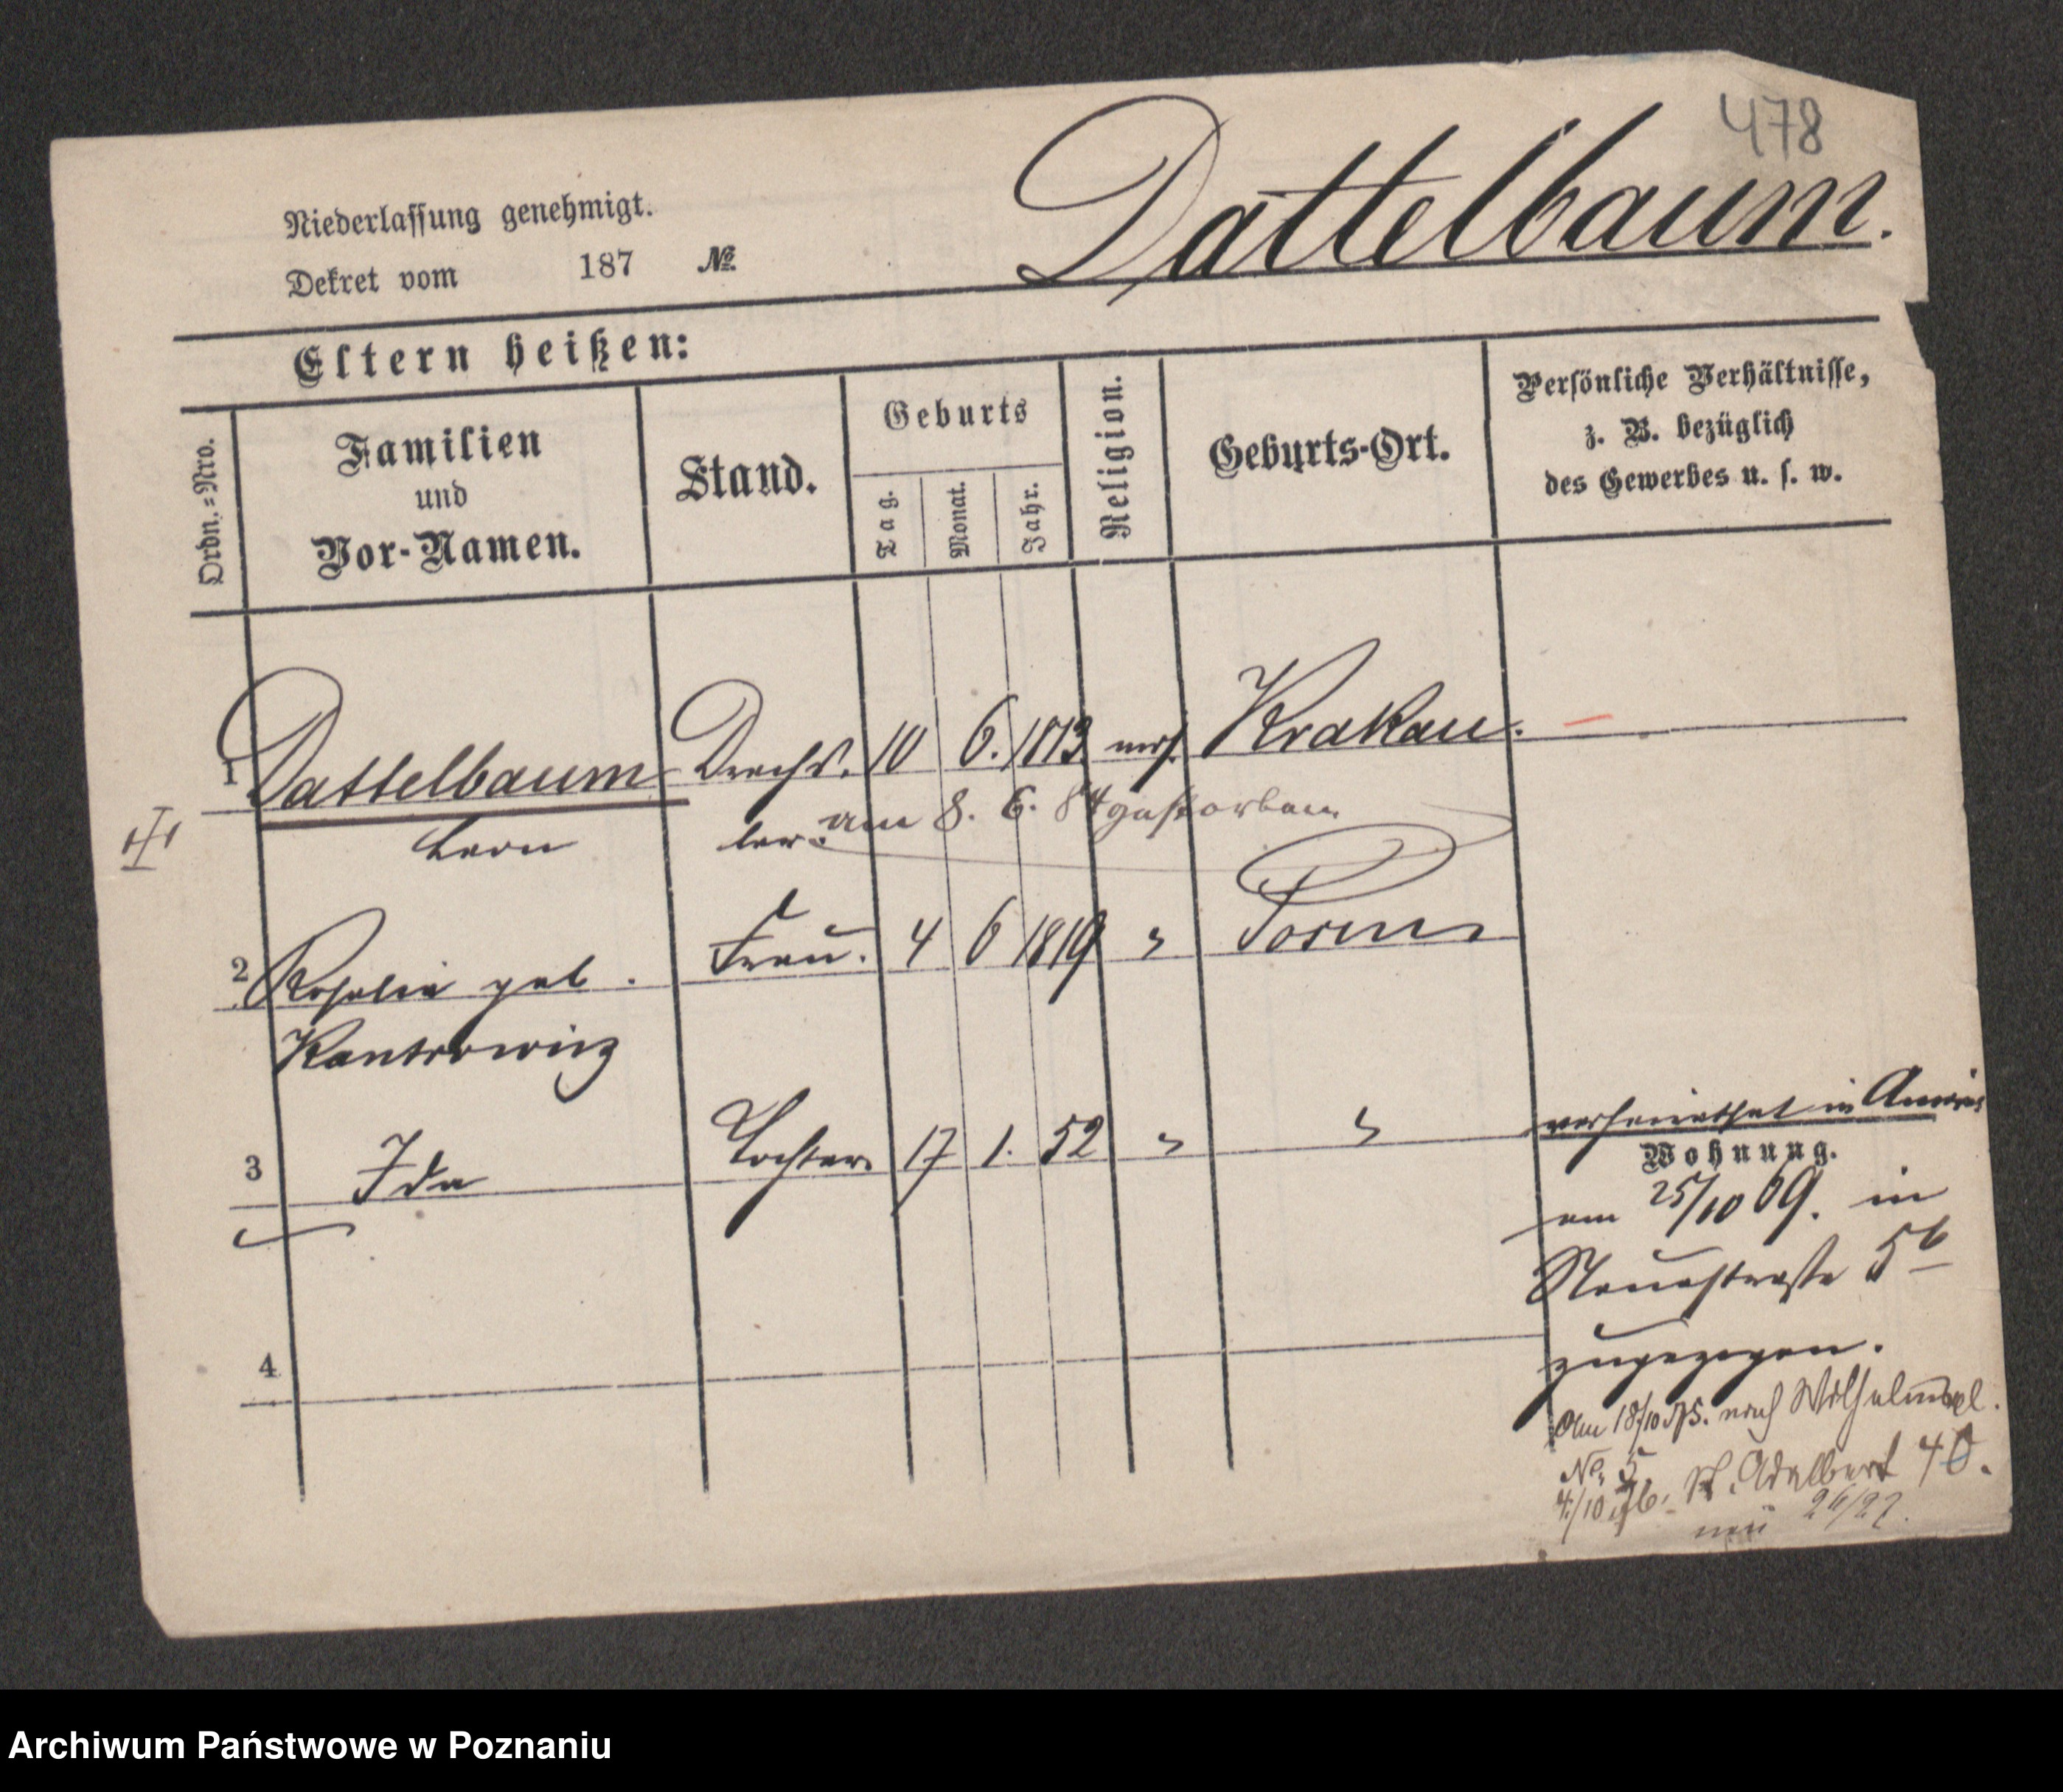 478
Dattelbaum.
Niederlassung genehmigt.
Dekret vom 187 №
Eltern heißen:
Ordn.=Nro.
Familien
und
Vor-Namen.
Stand.
Geburts
Tag.
Monat.
Jahr.
Religion.
Geburts-Ort.
Persönliche Verhältnisse,
z. B. bezüglich
des Gewerbes u. s. w.
1 Dattelbaum Drechs. 10 6. 1813 mos. Krakau.
Leon ler. am 8. 6. 84 gestorben
2 Rosalie geb. Frau. 4 6 1819 " Posen
Kantrowicz
3 Ida Tochter 17 1. 52 " "
verheirathet in
Wohnung.
am 25/10 69. in
Neuestraße 5b
zugezogen.
4
Am 18/10 75. nach Wilhelmspl.
No. 5
4/10 76. St. Adalbert 40.
neu 26/27.
Archiwum Państwowe w Poznaniu